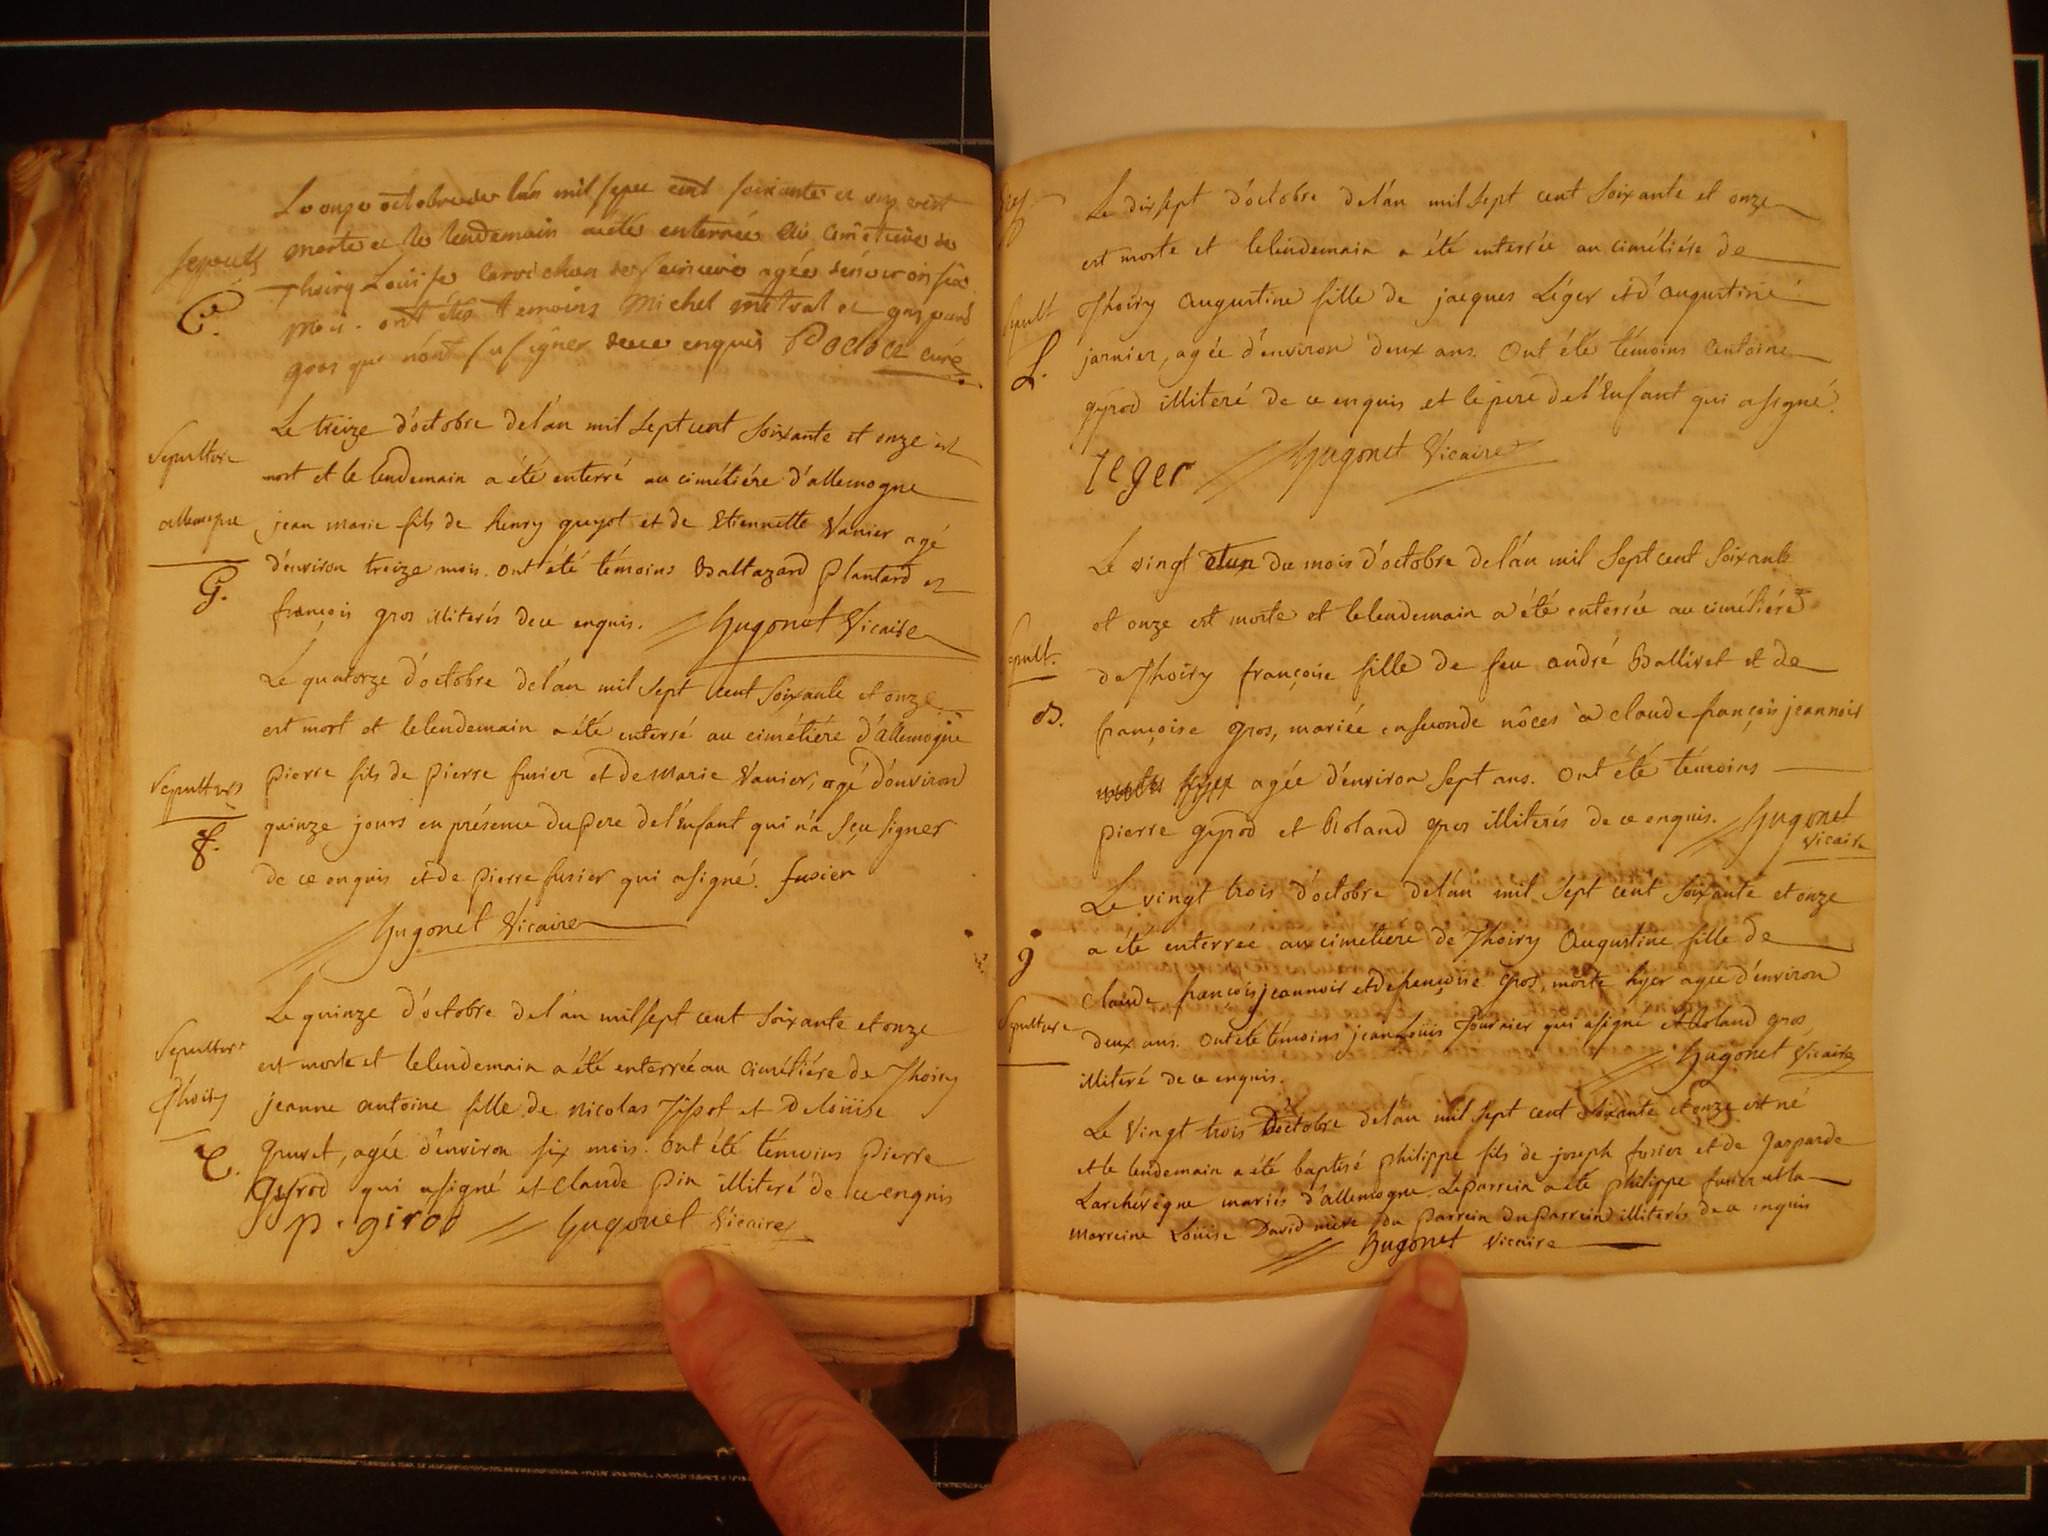 Le onze octobre de lan mil sept cent soixante et onze est
sepult morte et le lendemain a été enterrée au cimetiere de
Thoiry Louise agée denviron six
C. mois. ont étés temoins Michel metral et gaspard
gros qui n'ont su signer de ce enquis curé
Le treize d'octobre de l'an mil sept cent soixante et onze est
Sepulture
mort et le lendemain a été enterré au cimétiére d'allemogne
allemogne jean marie fils de henry guyot et de Etiennette Vanier agé
d'environ treize mois. Ont été témoins Baltazard Plantard et
G.
françois gros illiterés de ce enquis. Hugonet Vicaire
Le quatorze d'octobre de l'an mil sept cent soixante et onze
est mort et le lendemain a été enterré au cimétiére d'allemogne
Sepulture pierre fils de pierre fusier et de Marie Vanier, agé d'environ
quinze jours en présence du pere de l'Enfant qui n'a sçu signer
F.
de ce enquis et de pierre fusier qui a signé. fusier
Hugonet Vicaire
Le quinze d'octobre de l'an mil sept cent soixante et onze
Sepulture
est morte et le lendemain a été enterrée au cimétiére de Thoiry
Thoiry jeanne antoine fille de nicolas Tissot et de Loüise
T. gruet, agée d'environ six mois. Ont été témoins pierre
Gyrod qui a signé et Claude pin illiteré de ce enquis
p. girod Hugonet Vicaire
Le dixsept d'octobre de l'an mil sept cent soixante et onze
est morte et le lendemain a été enterrée au cimétiére de
sepult Thoiry augustine fille de jacques Léger et d'augustine
L. jarnier, agée d'environ deux ans. Ont été témoins antoine
gyrod illiteré de ce enquis et le pere de l'Enfant qui a signé.
leger Hugonet Vicaire
Le vingt etun du mois d'octobre de l'an mil sept cent soixante
et onze est morte et le lendemain a été enterrée au cimétiére
sepult. de Thoiry françoise fille de feu andré Ballivet et de
B. françoise gros, mariée en seconde nôces à claude françois jeannois
agée d'environ sept ans. Ont été témoins
pierre gyrod et Roland gros illiterés de ce enquis. Hugonet
Vicaire
Le vingt trois d'octobre de l'an mil sept cent soixante et onze
a été enterrée au cimetiere de Thoiry Augustine fille de
J
claude françois jeannois et de françoise gros, morte hyer agée d'environ
Sepulture deux ans. Ont été témoins jean Loüis fournier qui a signé et Roland gros
illiteré de ce enquis. Hugonet Vicaire
Le vingt trois d'octobre de l'an mil sept cent soixante et onze est né
et le lendemain a été baptisé philippe fils de joseph fusier et de gasparde
Larchevêque mariés d'allemogne. Le parrein a été philippe fusier et la
marreine Loüise David mère du parrein du parrein illiterés de ce enquis
Hugonet Vicaire